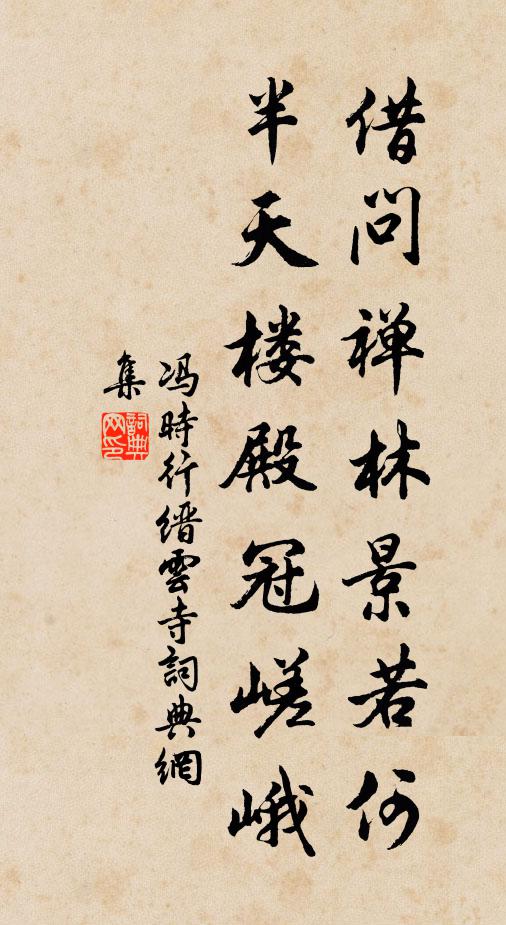 借问禅林景若何
半天楼殿冠嵯峨
冯時行缙雲寺詞典網
集
詞典网印